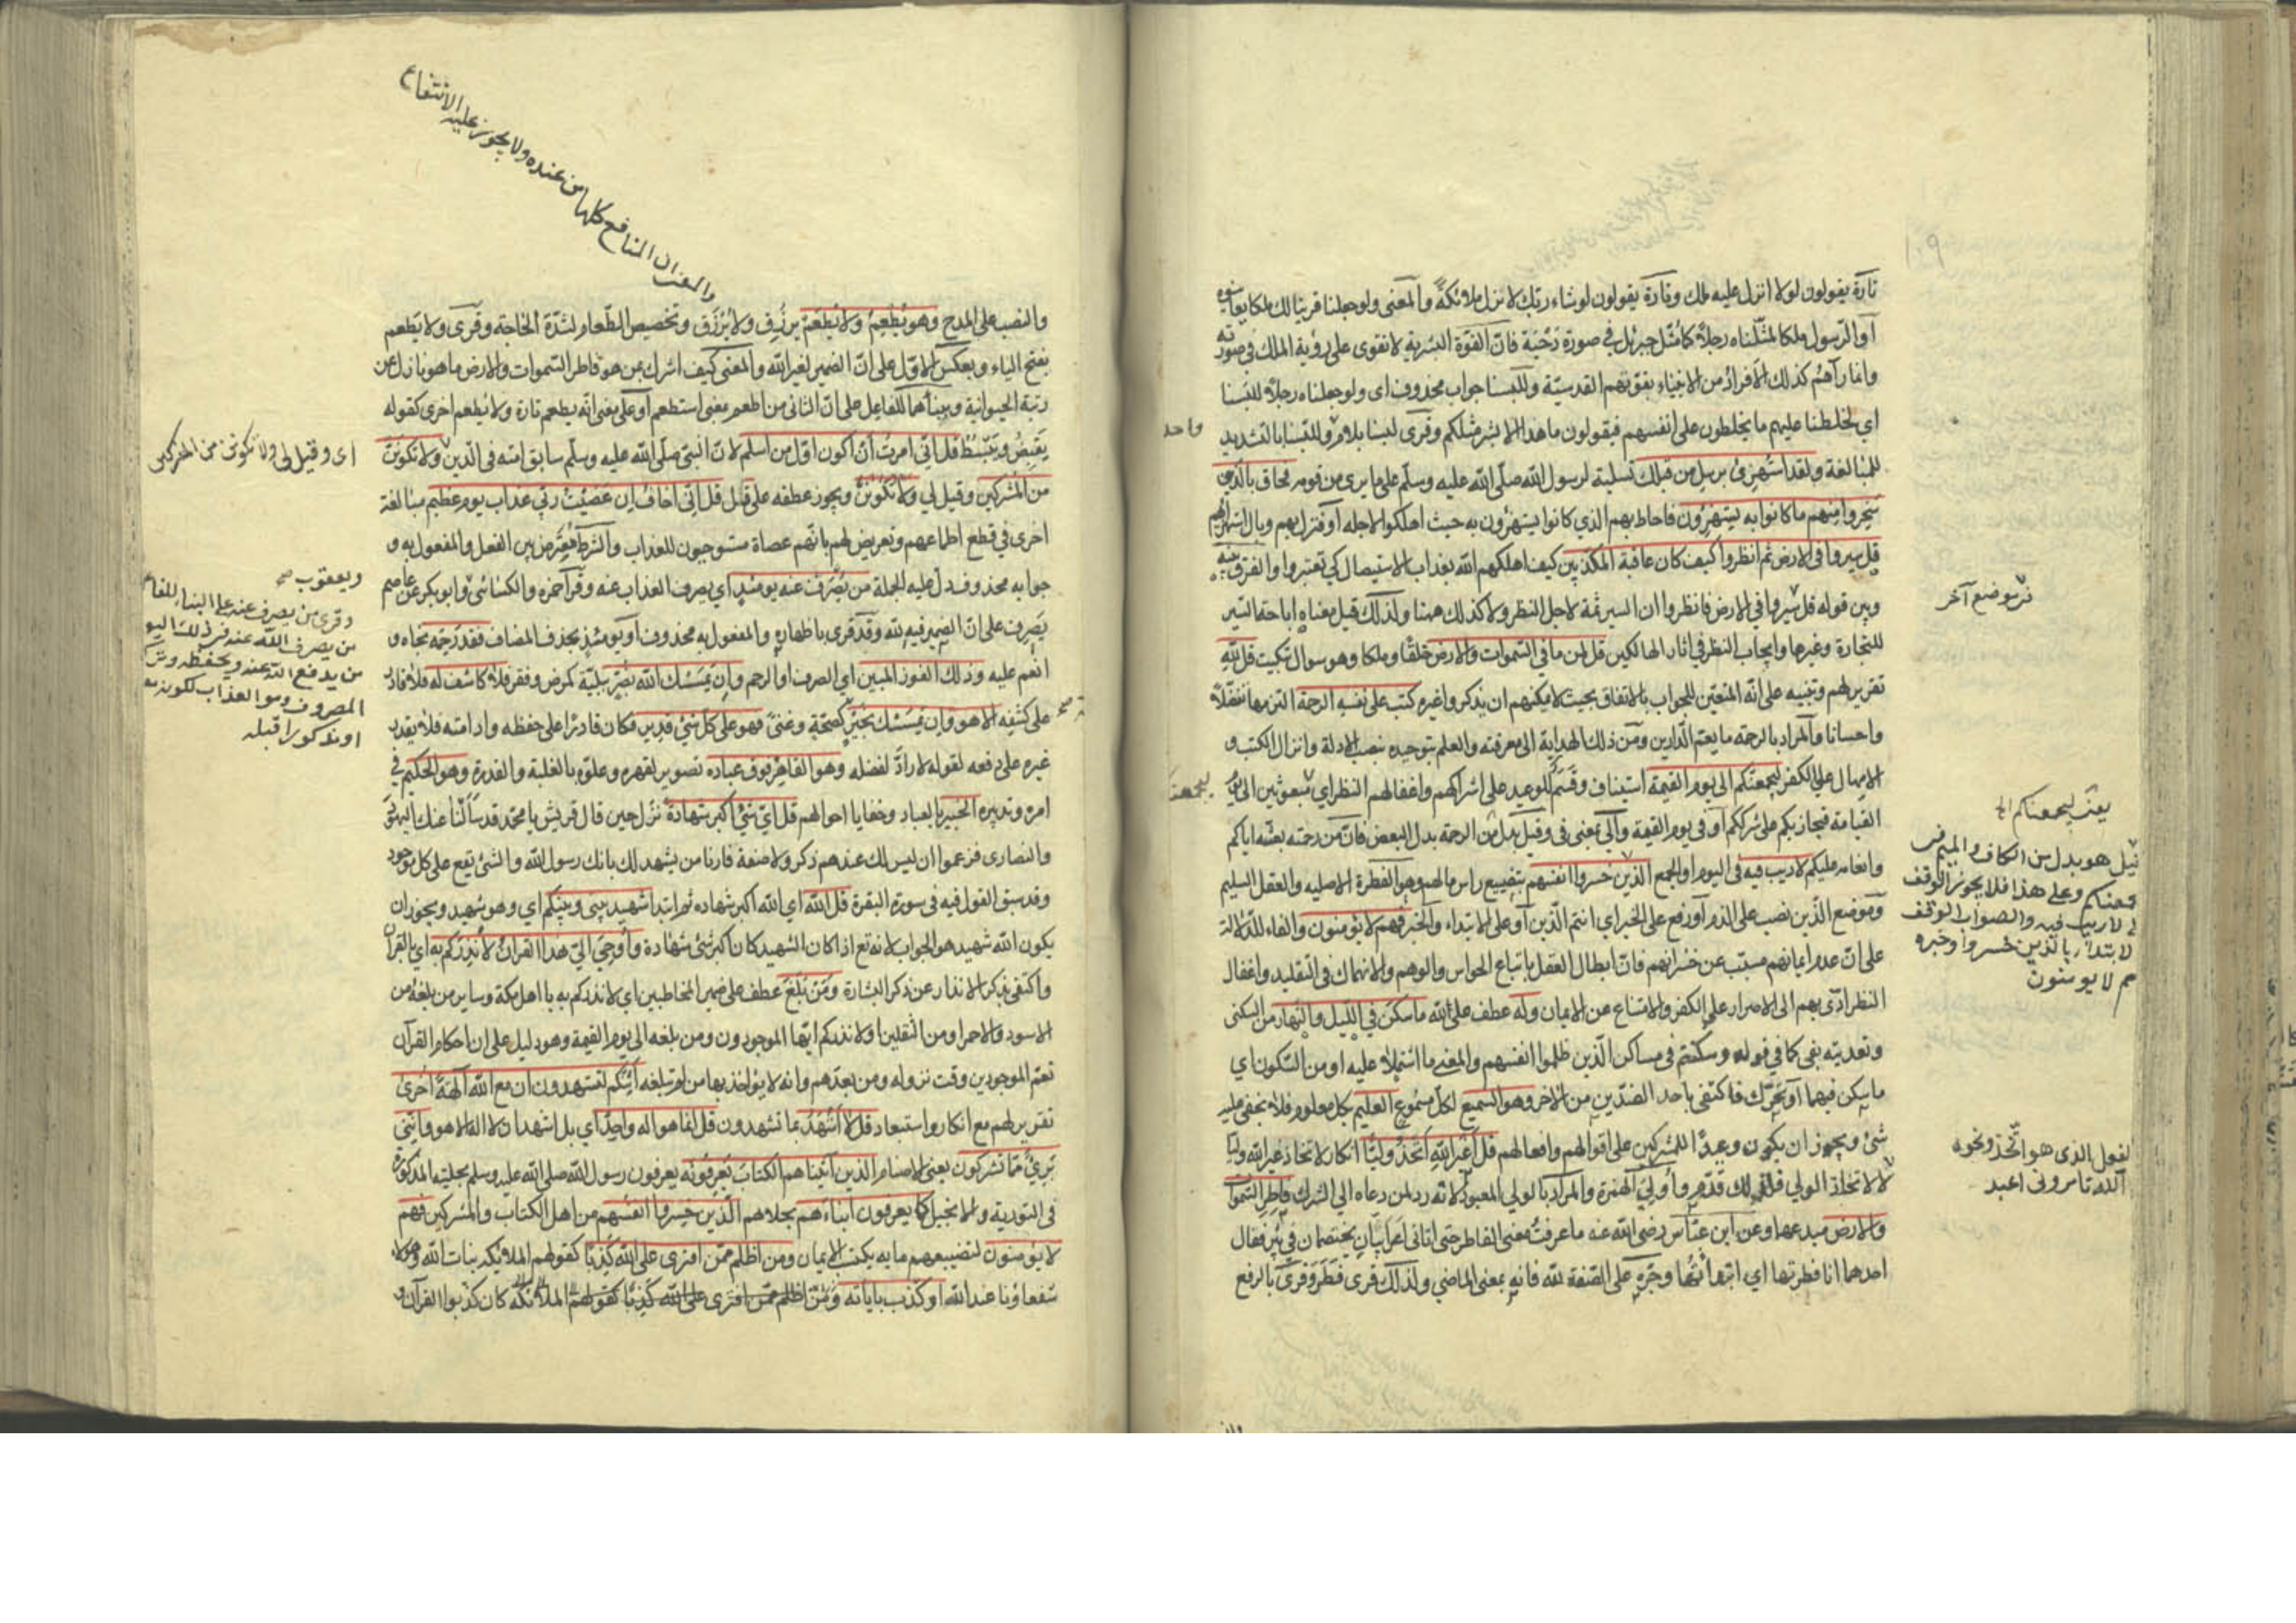 تارة يقولون لولا انزل عليه ملك وتارة يقولون لو شاء ربك لانزل ملائكة والمعنى ولو جعلنا قرينا لك ملكا يعاينوه
او الرسول ملكا لمثلناه رجلا كما مثل جبرئل في صورة دحية فان القوة البشرية لا تقوى على رؤية الملك في صورته
وانما رآهم كذلك الافراد من الانبياء بقوتهم القدسية وللبسنا جواب محذوف اى ولو جعلناه رجلا للبسنا
اي لخلطنا عليهم ما يخلطون على انفسهم فيقولون ما هذا الا بشر مثلكم وقرى لبسنا بلام وللبسنا بالتشديد
للمبالغة ولقد استهزئ برسل من قبلك تسلية لرسول الله صلى الله عليه وسلم على ما يرى من قومه فحاق بالذين
سخروا منهم ما كانوا به يستهزؤن فاحاط بهم الذي كانوا يستهزؤن به حيث اهلكوا لاجله او فنزل بهم وبال استهزائهم
قل سيروا في الارض ثم انظروا كيف كان عاقبة المكذبين كيف اهلكهم الله بعذاب الاستيصال كي تعتبروا والفرق بينه
وبين قوله قل سيروا في الارض فانظروا ان السير ثمة لاجل النظر ولا كذلك ههنا ولذلك قيل معناه اباحة السير
للتجارة وغيرها وايجاب النظر في اثار الهالكين قل لمن ما في السموات والارض خلقا وملكا وهو سوال تبكيت قل لله
تقريرلهم وتنبيه على انه المتعين للجواب بالاتفاق بحيث لا يمكنهم ان يذكروا غيره كتب على نفسه الرحمة التزمها تفضلا
واحسانا والمراد بالرحمة ما يعم الدارين ومن ذلك الهداية الى معرفته والعلم بتوحيده بنصب الادلة وانزال الكتب و
الامهال على الكفر ليجمعنكم الى يوم القيمة استيناف وقسم للوعيد على اشراكهم واغفالهم النظر اي مبعوثين الى يوم
القيامة فيجازيكم على شرككم او في يوم القيمة والى بمعنى في وقيل بدل من الرحمة بدل البعض فان من رحمته بعثه اياكم
وانعامه عليكم لا ريب فيه في اليوم او الجمع الذين خسروا انفسهم بتضييع راس مالهم وهو الفطرة الاصليه والعقل السليم
وموضع الذين نصب على الذم او رفع على الخبر اي انتم الذين او على الابتداء والخبر فهم لا يؤمنون والفاء للدلالة
على ان عدم ايمانهم مسبب عن خسرانهم فان ابطال العقل باتباع الحواس والوهم والانهماك في التقليد واغفال
النظر ادى بهم الى الاصرار على الكفر والامتناع عن الايمان وله عطف على الله ما سكن في الليل والنهار من السكنى
وتعديته بفى كما في قوله وسكنتم في مساكن الذين ظلموا انفسهم والمعنى ما اشتملا عليه او من السكون اي
ما سكن فيهما او تحرك فاكتفى باحد الضدين من الآخر وهو السميع لكل مسموع العليم بكل معلوم فلا يخفى عليه
شئ ويجوز ان يكون وعيدا للمشركين على اقوالهم وافعالهم قل اغير الله اتخذ وليا انكار لاتخاذ غير الله وليا
لا لاتخاذ الولي فلذلك قدم واولي الهمزة والمراد بالولي المعبود لانه رد لمن دعاه الى الشرك فاطر السموات
والارض مبدعها وعن ابن عباس رضى الله عنه ما عرفت معنى الفاطر حتى اتانى اعرابيان يختصمان في بئر فقال
احدهما انا فطرتها اي ابتداتها وجره على الصفة لله فانه بمعنى الماضي ولذلك قرى فطر وقرى بالرفع
واحد
نزموضع آخر
ليجمعنكم
يعنى ليجمعناكم الى
قيل هو بدل من الكاف والميم فى
وعلى هذا فلا يجوز الوقف
لا ريب فيه والصواب الوقف
لابتداء بالذين خسروا وخبره
هم لا يومنون
لفول الذى هو اتخذ ونحوه
الله تامرونى اعبد
والمعنى ان المنافع كلها من عنده ولا يجوز عليه الانتفاع
والنصب على المدح وهو يطعم ولا يطعم يرزق ولا يرزق وتخصيص الطعام لشدة الحاجة وقرى ولا يطعم
بفتح الياء وبعكس الاول على ان الضمير لغير الله والمعنى كيف اشرك بمن هو فاطر السموات والارض ما هو نازل عن
رتبة الحيوانية وببنائهما للفاعل على ان الثانى من اطعم بمعنى استطعم او على معنى انه يطعم تارة ولا يطعم اخرى كقوله
يقبض ويبسط قل انى امرت ان اكون اول من اسلم لان النبى صلى الله عليه وسلم سابق امته فى الدين ولا تكونن
من المشركين وقيل لي ولا تكونن ويجوز عطفه على قل قل انى اخاف ان عصيت ربي عذاب يوم عظيم مبالغة
اخرى في قطع اطماعهم وتعريض لهم بانهم عصاة مستوجبون للعذاب والشرط معترض بين الفعل والمفعول به و
جوابه محذوف دل عليه الجملة من يصرف عنه يومئذ اي يصرف العذاب عنه وقرا حمزه والكسائى وابو بكر عن عاصم
يصرف على ان الضمير فيه لله وقد قرى باظهاره والمفعول به محذوف او يومئذ بحذف المضاف فقد رحمه نجاه و
انعم عليه وذلك الفوز المبين اي الصرف او الرحم وان يمسسك الله بضر ببلية كمرض وفقر فلا كاشف له فلا قادر
على كشفه الا هو وان يمسسك بخير كصحة وغنى فهو على كل شئ قدير فكان قادرا على حفظه وادامته فلا يقدر
غيره على دفعه لقوله لا راد لفضله وهو القاهر فوق عباده تصوير لقهره وعلوه بالغلبة والقدرة وهو الحكيم في
امره وتدبيره الخبير بالعباد وخفايا احوالهم قل اي شئ اكبر شهادة نزل حين قال قريش يا محمد قد سالنا عنك اليهود
والنصارى فزعموا ان ليس لك عندهم ذكر ولا صفة فارنا من يشهد لك بانك رسول الله والشئ يقع على كل موجود
وقد سبق القول فيه فى سورة البقرة قل الله اي الله اكبر شهاده ثم ابتدا شهيد بينى وبينكم اي وهو شهيد ويجوز ان
يكون الله شهيد هو الجواب لانه تع اذا كان الشهيد كان اكبر شئ شهادة واوحي الي هذا القرآن لانذركم به اي بالقرآن
واكتفى بذكر الانذار عن ذكر البشارة ومن بلغ عطف على ضمير المخاطبين اي لانذركم به يا اهل مكة وساير من بلغه من
الاسود والاحمر او من الثقلين او لانذركم ايها الموجودون ومن بلغه الى يوم القيمة وهو دليل على ان احكام القرآن
تعم الموجودين وقت نزوله ومن بعدهم وانه لا يؤاخذ بها من لم تبلغه ائنكم لتشهدون ان مع الله آلهة اخرى
تقريرلهم مع انكار واستبعاد قل لا اشهد بما تشهدون قل انما هو اله واحد اي بل اشهد ان لا اله الا هو واننى
برئ مما تشركون يعنى الاصنام الذين آتيناهم الكتاب يعرفونه يعرفون رسول الله صلى الله عليه وسلم بحليته المذكورة
فى التورية والانجيل كما يعرفون ابناءهم بحلاهم الذين خسروا انفسهم من اهل الكتاب والمشركين فهم
لا يؤمنون لتضييعهم ما به يكتسب الايمان ومن اظلم ممن افترى على الله كذبا كقولهم الملائكة بنات الله وهؤلاء
شفعاؤنا عند الله او كذب باياته ومن اظلم ممن افترى على الله كذبا كقولهم الملائكة كان كذبوا القرآن و
اى وقيل لى ولا تكونن من المشركين
ويعقوب صح
وقرى من يصرف عنه على البناء للفاعل
من يصرف الله عنه فى ذلك اليوم
من يدفع الله عنه ويحفظه
المصروف وهو العذاب لكونه
او مذكورا قبله